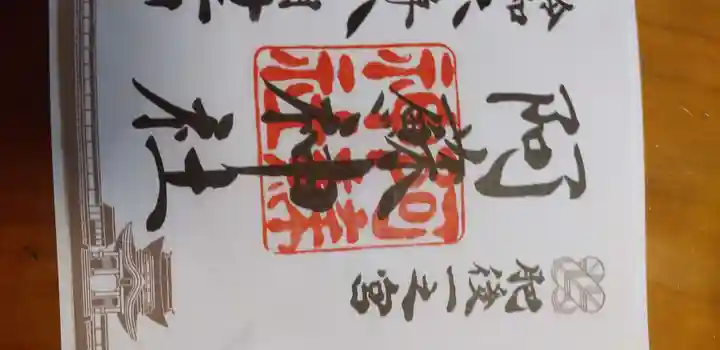 肥後一之宮
阿蘇神社
阿蘇
神社
令和